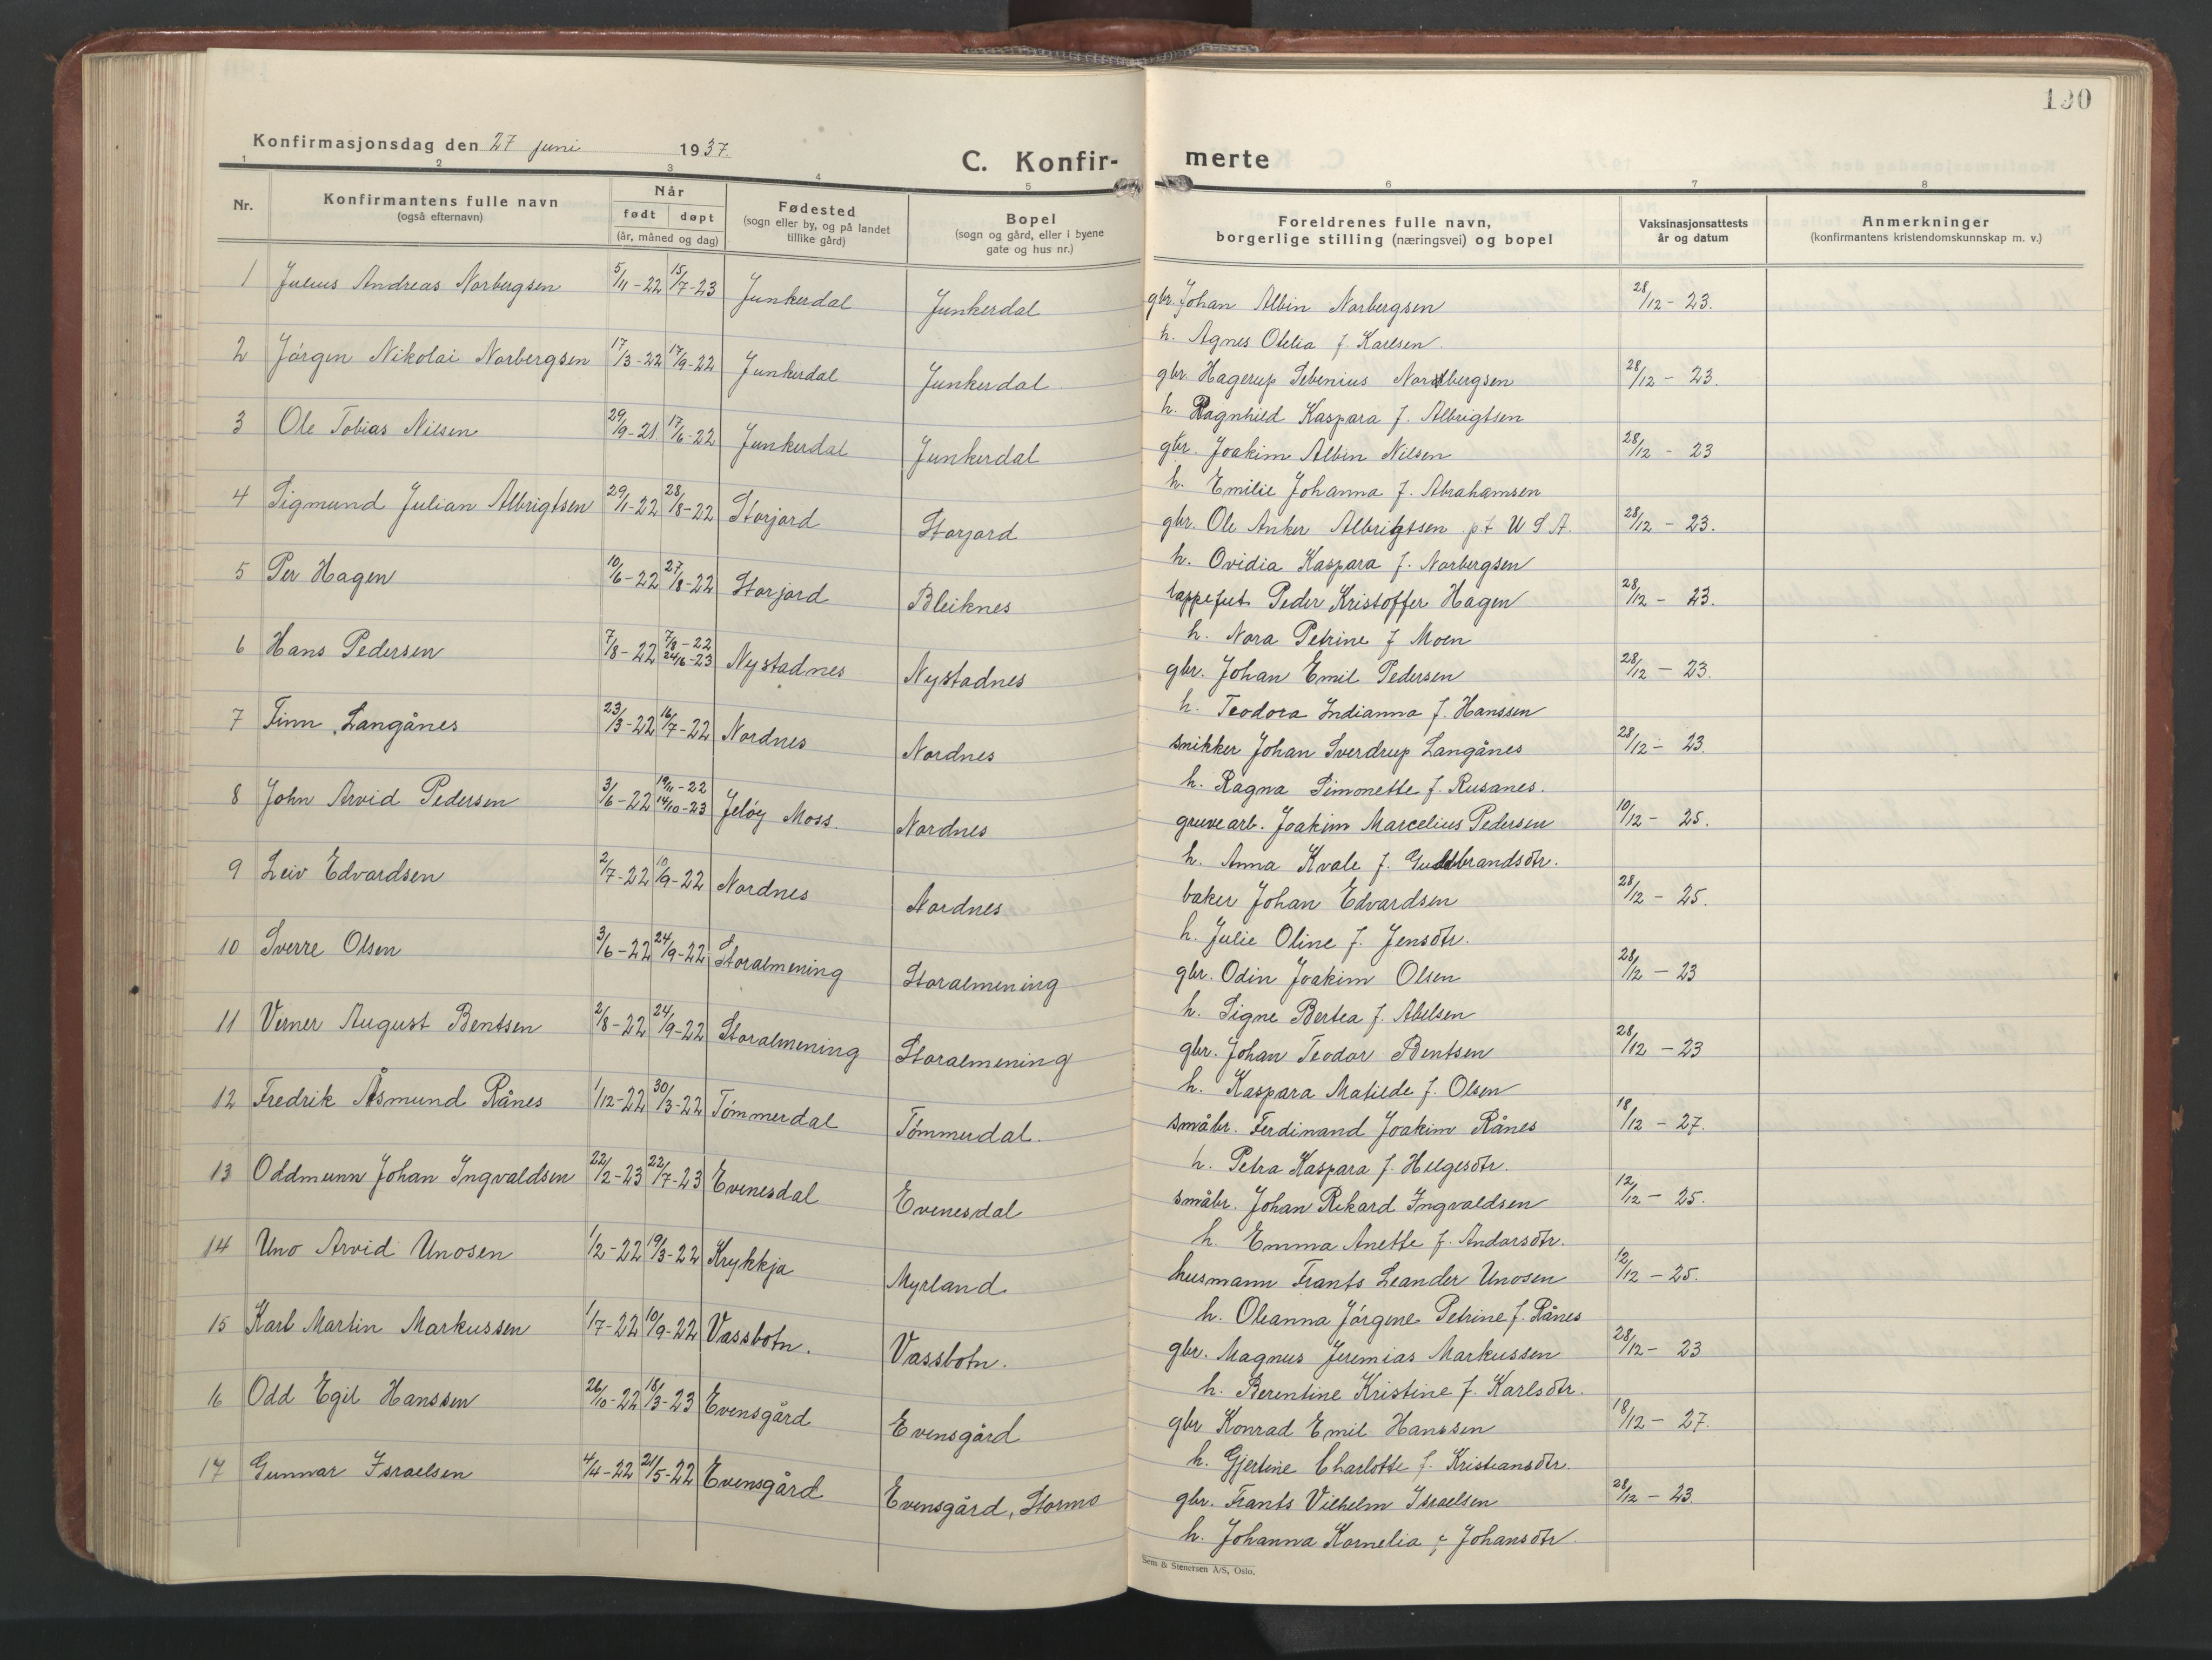 190
Konfirmasjonsdag den 27 juni 1937
C. Konfir- merte
1 2 3 4 5 6 7 8
Nr. Konfirmantens fulle navn (også efternavn) Når født døpt (år, måned og dag) Fødested (sogn eller by, og på landet tillike gård) Bopel (sogn og gård, eller i byene gate og hus nr.) Foreldrenes fulle navn, borgerlige stilling (næringsvei) og bopel Vaksinasjonsattests år og datum Anmerkninger (konfirmantens kristendomskunnskap m. v.)
1 Julius Andreas Norbergsen 5/11-22 15/7-23 Junkerdal Junkerdal gbr. Johan Albin Norbergsen 28/12-23.
h. Agnes Otelia f. Karlsen
2 Jørgen Nikolai Norbergsen 17/3-22 17/9-22 Junkerdal Junkerdal gbr. Hagerup Sebenius Nordbergsen 28/12-23.
h. Ragnhild Kaspara f. Albrigtsen
3 Ole Tobias Nilsen 29/9-21 17/6-22 Junkerdal Junkerdal gbr. Joakim Albin Nilsen 28/12-23
h. Emilie Johanna f. Abrahamsen
4 Sigmund Julian Albrigtsen 29/1-22 28/8-22 Storjord Storjord gbr. Ole Anker Albrigtsen pt U S A. 28/12-23.
h. Ovidia Kaspara f. Norbergsen
5 Per Hagen 10/6-22 27/8-22 Storjord Bleiknes Peder Kristoffer Hagen 28/12-23.
h. Nora Petrine f Moen
6 Hans Pedersen 7/8-22 7/8-22 24/6-23 Nystadnes Nystadnes gbr. Johan Emil Pedersen 28/12-23.
h. Teodora Indianna f. Hanssen
7 Finn Langånes 23/3-22 16/7-22 Nordnes Nordnes snikker Johan Sverdrup Langånes 28/12-23
h. Ragna Simonette f. Rusanes.
8 John Arvid Pedersen 3/6-22 19/11-22 14/10-23 Jeløy Moss. Nordnes gruvearb. Joakim Marcelius Pedersen 10/12-25.
h. Anna Kvale f. Guldbrandsdtr.
9 Leiv Edvardsen 2/7-22 10/9-22 Nordnes Nordnes baker Johan Edvardsen 28/12-25.
h. Julie Oline f. Jensdtr.
10 Sverre Olsen 3/6-22 24/9-22 Storalmening Storalmening gbr. Odin Joakim Olsen 28/12-23
h. Signe Bertea f. Abelsen
11 Verner August Bentsen 2/8-22 24/9-22 Storalmening Storalmening gbr. Johan Teodor Bentsen 28/12-23
h. Kaspara Matilde f. Olsen
12 Fredrik Åsmund Rånes 1/12-22 30/3-22 Tømmerdal Tømmerdal. småbr. Ferdinand Joakim Rånes 18/12-27.
h. Petra Kaspara f. Helgesdtr.
13 Oddmunn Johan Ingvaldsen 22/2-23 22/7-23 Evenesdal Evenesdal småbr. Johan Rikard Ingvaldsen 12/12-25.
h. Emma Anette f. Andorsdtr.
14 Uno Arvid Unosen 1/2-22 19/3-22 Krykkja Myrland husmann Frants Leander Unosen 12/12-25.
h. Oleanna Jørgine Petrine f. Rånes
15 Karl Martin Markussen 1/7-22 10/9-22 Vassbotn. Vassbotn. gbr. Magnus Jeremias Markussen 28/12-23
h. Berentine Kristine f. Karlsdtr.
16 Odd Egil Hanssen 26/10-22 18/3-23 Evensgård Evensgård gbr Konrad Emil Hanssen 18/12-27.
h. Gjertine Charlotte f. Kristiansdtr.
17 Gunnar Israelsen 4/4-22 21/5-22 Evensgård Evensgård, Stormo gbr. Frants Vilhelm Israelsen 28/12-23.
h. Johanna Kornelia f Johansdtr.
Sem & Stenersen A/S, Oslo.